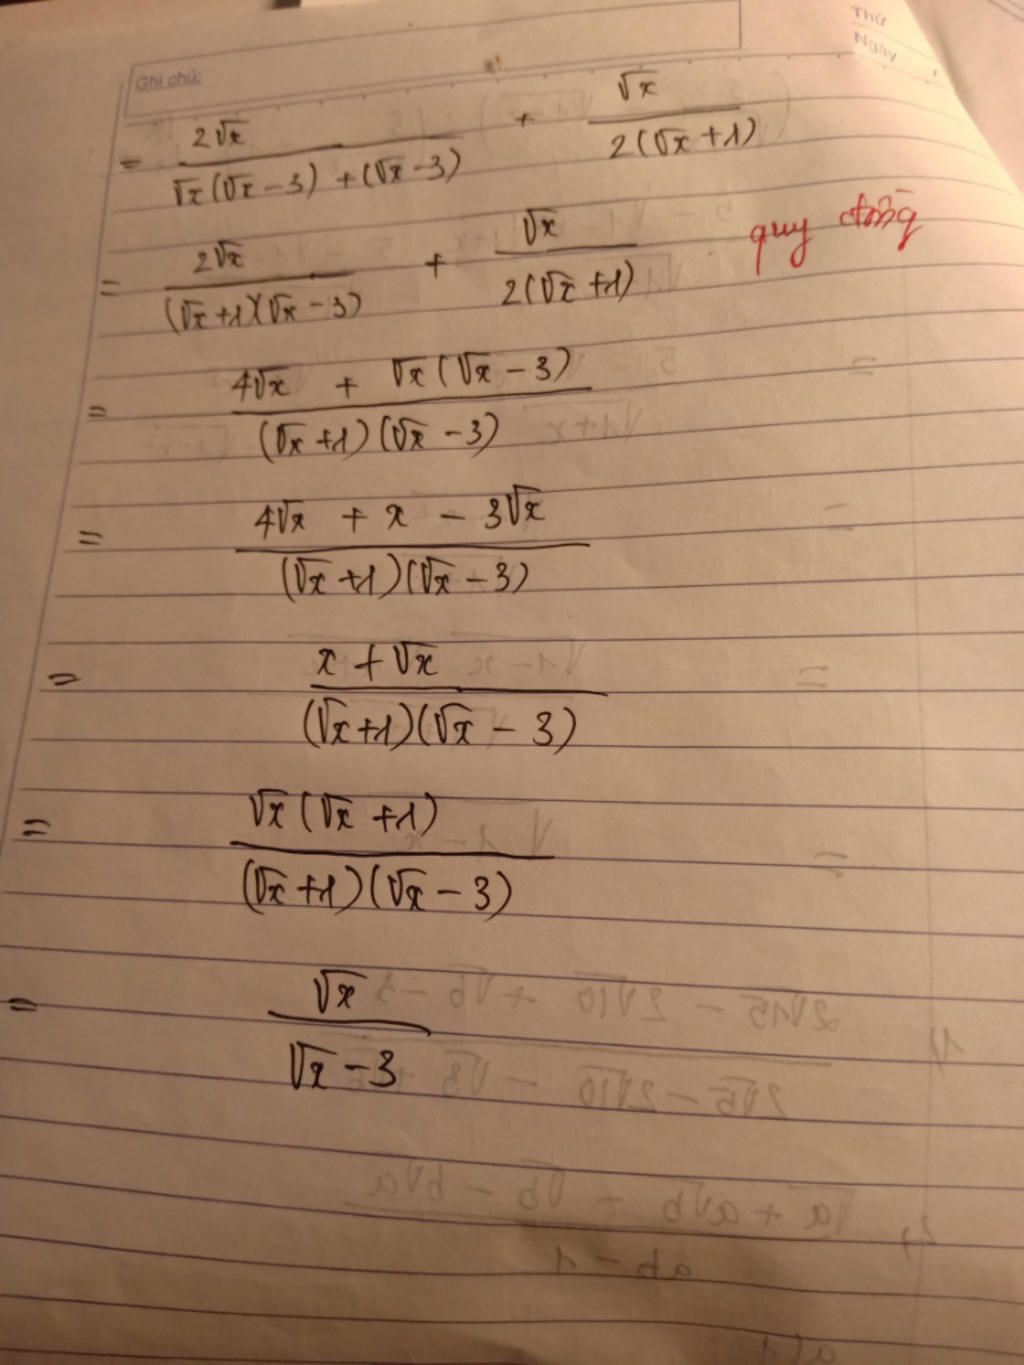 Thứ
Ngày
Ghi chú:
= 2√x / (√x(√x − 3) + (√x − 3)) + √x / (2(√x + 1))
= 2√x / ((√x + 1)(√x − 3)) + √x / (2(√x + 1)) quy đồng
= (4√x + √x(√x − 3)) / ((√x + 1)(√x − 3))
= (4√x + x − 3√x) / ((√x + 1)(√x − 3))
= (x + √x) / ((√x + 1)(√x − 3))
= √x(√x + 1) / ((√x + 1)(√x − 3))
= √x / (√x − 3)